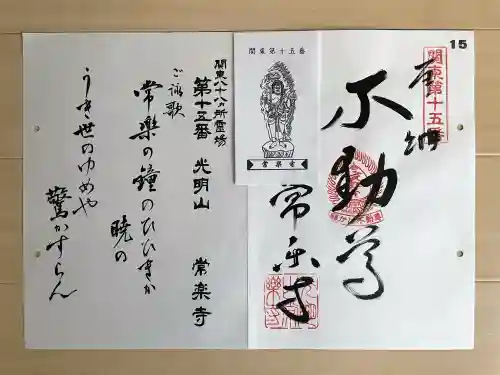 15
関東第十五番
奉納
不動尊
常楽寺
関東第十五番
常楽寺
関東八十八ヵ所霊場
第十五番 光明山 常楽寺
ご詠歌
常楽の鐘のひびきか
暁の
うき世のゆめや
驚かすらん